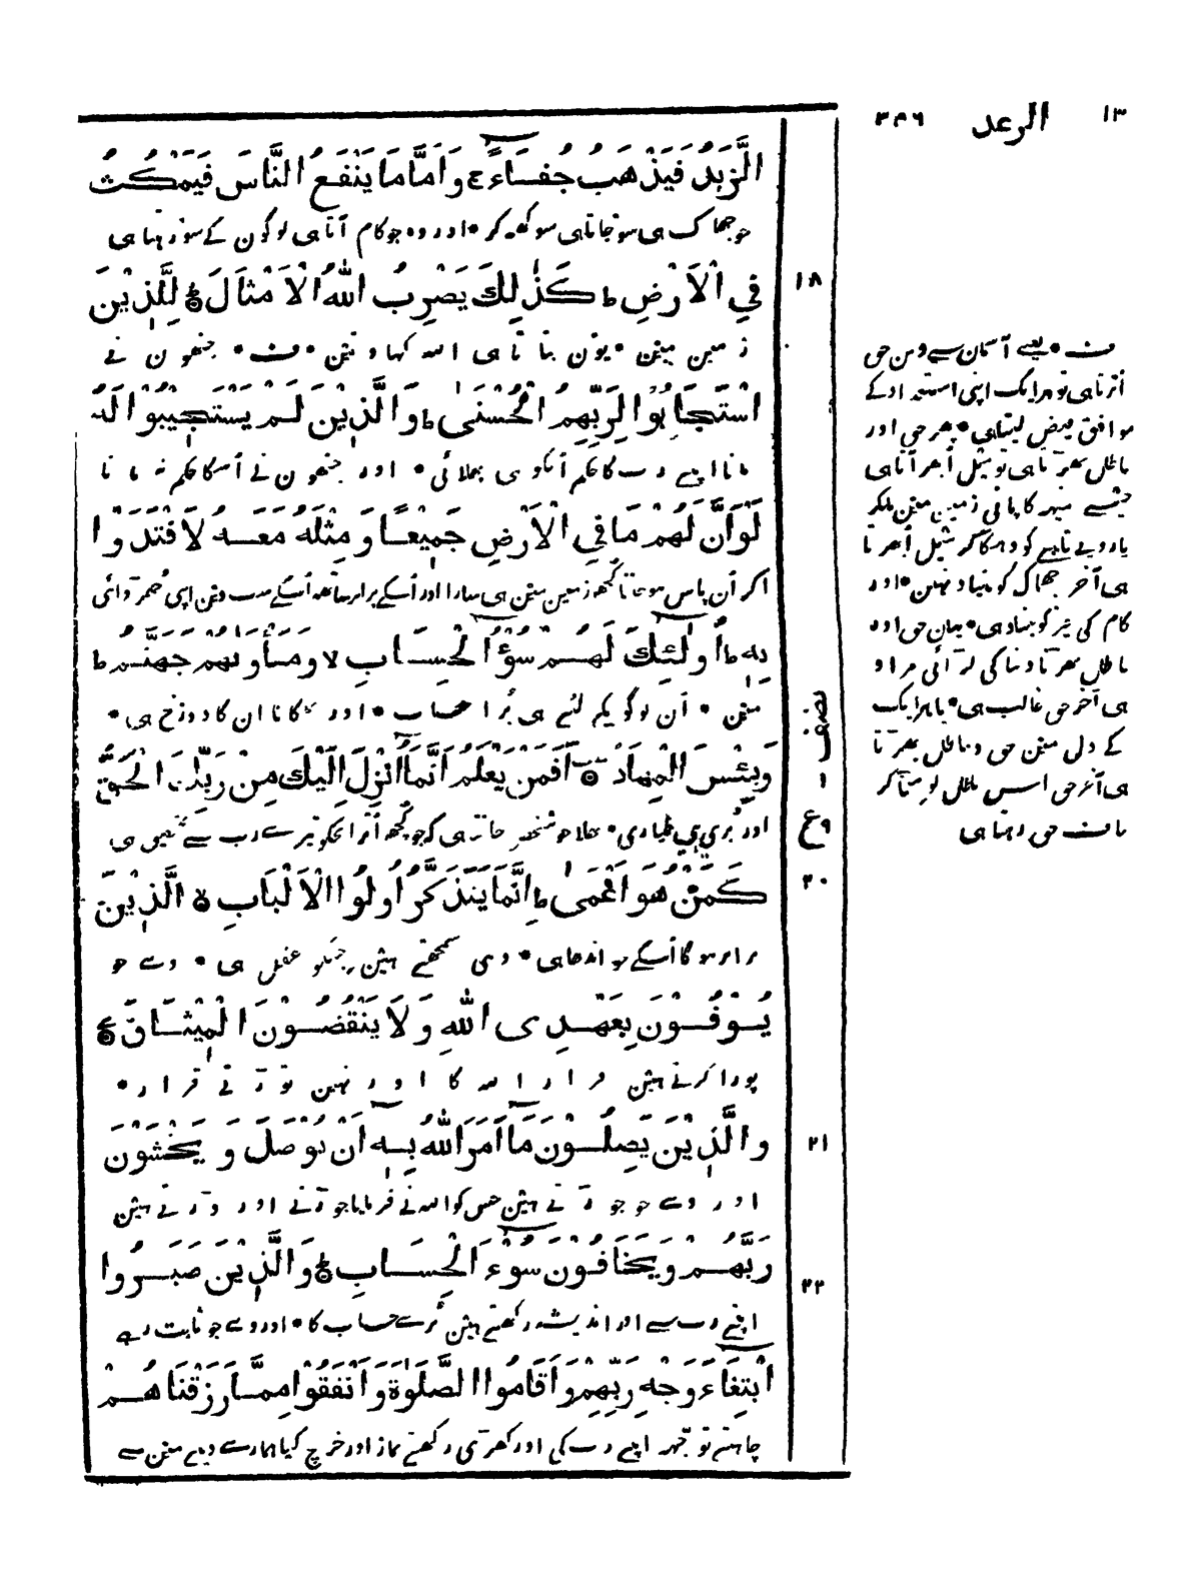 ١٣ الرعد ٣٣٦
الزَّبَدُ فَيَذْهَبُ جُفَاءً ج وَاَمَّا مَا يَنْفَعُ النَّاسَ فَيَمْكُثُ
جو جھاگ ہی سو جاتا ہی سوکھ کر • اور وہ جو کام آتا ہی لوگون کے سو رہتا ہی
فِي الْاَرْضِ ط كَذٰلِكَ يَضْرِبُ اللهُ الْاَمْثَالَ ط لِلَّذِيْنَ
١٨
زمین مین • یون بتاتا ہی اللہ کہاوتین • ف • جنھون نے
اسْتَجَابُوْا لِرَبِّهِمُ الْحُسْنٰى ط وَالَّذِيْنَ لَمْ يَسْتَجِيْبُوْا لَهُ
مانا اپنے رب کا حکم اُنکو ہی بھلائی • اور جنھون نے اُسکا حکم نہ مانا
لَوْ اَنَّ لَهُمْ مَا فِي الْاَرْضِ جَمِيْعًا وَمِثْلَهُ مَعَهُ لَافْتَدَوْا
اگر اُن پاس ہو جتنا کچھ زمین مین ہی سارا اور اُسکے برابر ساتھ اُسکے سب دین اپنی چھڑوائی
بِهٖ ط اُولٰئِكَ لَهُمْ سُوْءُ الْحِسَابِ لا وَمَأْوٰىهُمْ جَهَنَّمُ ط
مین • اُن لوگو یکے لئے ہی بُرا حساب • اور ٹھکانا ان کا دوزخ ہی •
وَبِئْسَ الْمِهَادُ اَفَمَنْ يَعْلَمُ اَنَّمَا اُنْزِلَ اِلَيْكَ مِنْ رَبِّكَ الْحَقُّ
نصف
اور بُری ہی طیاری • بھلا جو شخص جانتا ہی کہ جو کچھ اُترا تجکو تیرے رب سے تحقیق ہی
ع
كَمَنْ هُوَ اَعْمٰى ط اِنَّمَا يَتَذَكَّرُ اُولُوا الْاَلْبَابِ الَّذِيْنَ
٢٠
برابر ہوگا اُسکے جو اندھا ہی • وہی سمجھتے ہین جنکو عقل ہی • وے جو
يُوْفُوْنَ بِعَهْدِ ى اللهِ وَلَا يَنْقُضُوْنَ الْمِيْثَاقَ
پورا کرتے ہین قرار اللہ کا اور نہین توڑتے قرار •
وَالَّذِيْنَ يَصِلُوْنَ مَا اَمَرَ اللهُ بِهٖ اَنْ يُوْصَلَ وَيَخْشَوْنَ
٢١
اور وے جو جوڑتے ہین جس کو اللہ نے فرمایا جوڑنے اور ڈرتے ہین
رَبَّهُمْ وَيَخَافُوْنَ سُوْءَ الْحِسَابِ ط وَالَّذِيْنَ صَبَرُوا
٢٢
اپنے رب سے اور اندیشہ رکھتے ہین بُرے حساب کا • اور وے جو ثابت رہے
ابْتِغَاءَ وَجْهِ رَبِّهِمْ وَاَقَامُوا الصَّلٰوةَ وَاَنْفَقُوْا مِمَّا رَزَقْنَاهُمْ
چاہتے توجّہ اپنے رب کی اور کھڑی رکھتے نماز اور خرچ کیا ہمارے دیے مین سے
ف • یعنے آسمان سے دین حق
اُترتا ہی تو ہر ایک اپنی استعداد کے
موافق فیض لیتا ہی • پھر حق اور
باطل بھڑتا ہی تو میل اُبھر آتا ہی
جیسے مینہ کا پانی زمین مین ملکر
یا روپے تانبے کو دھکا کر میل اُبھرتا
ہی آخر جھاگ کو بنیاد نہین • اور
کام کی چیز کو بنیاد ہی • یہان حق اور
باطل بھڑتا دنیا کی لڑائی مراد
ہی آخر حق غالب ہی • یا ہر ایک
کے دل مین حق و باطل بھڑتا
ہی آخر حق اس باطل کو مٹا کر
صاف حق رہتا ہی